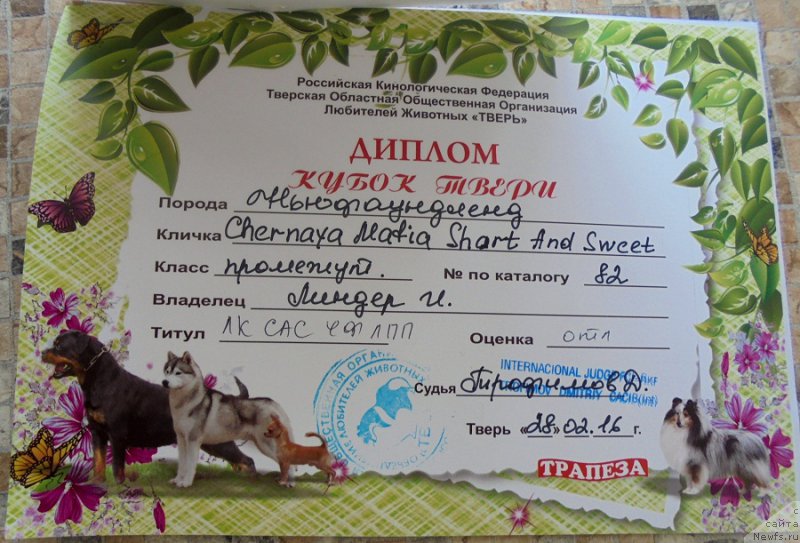 Российская Кинологическая Федерация
Тверская Областная Общественная Организация
Любителей Животных «ТВЕРЬ»
ДИПЛОМ
КУБОК ТВЕРИ
Порода Ньюфаундленд
Кличка Chernaya Mafia Shart And Sweet
Класс промежут. № по каталогу 82
Владелец Линдер И.
Титул ЛК САС ЧФ ЛПП Оценка отл
INTERNACIONAL JUDGE
Судья Трофимов Д.
DMITRIY CACIB(int)
Тверь «28» 02.16 г.
ТРАПЕЗА
с
сайта
Newfs.ru